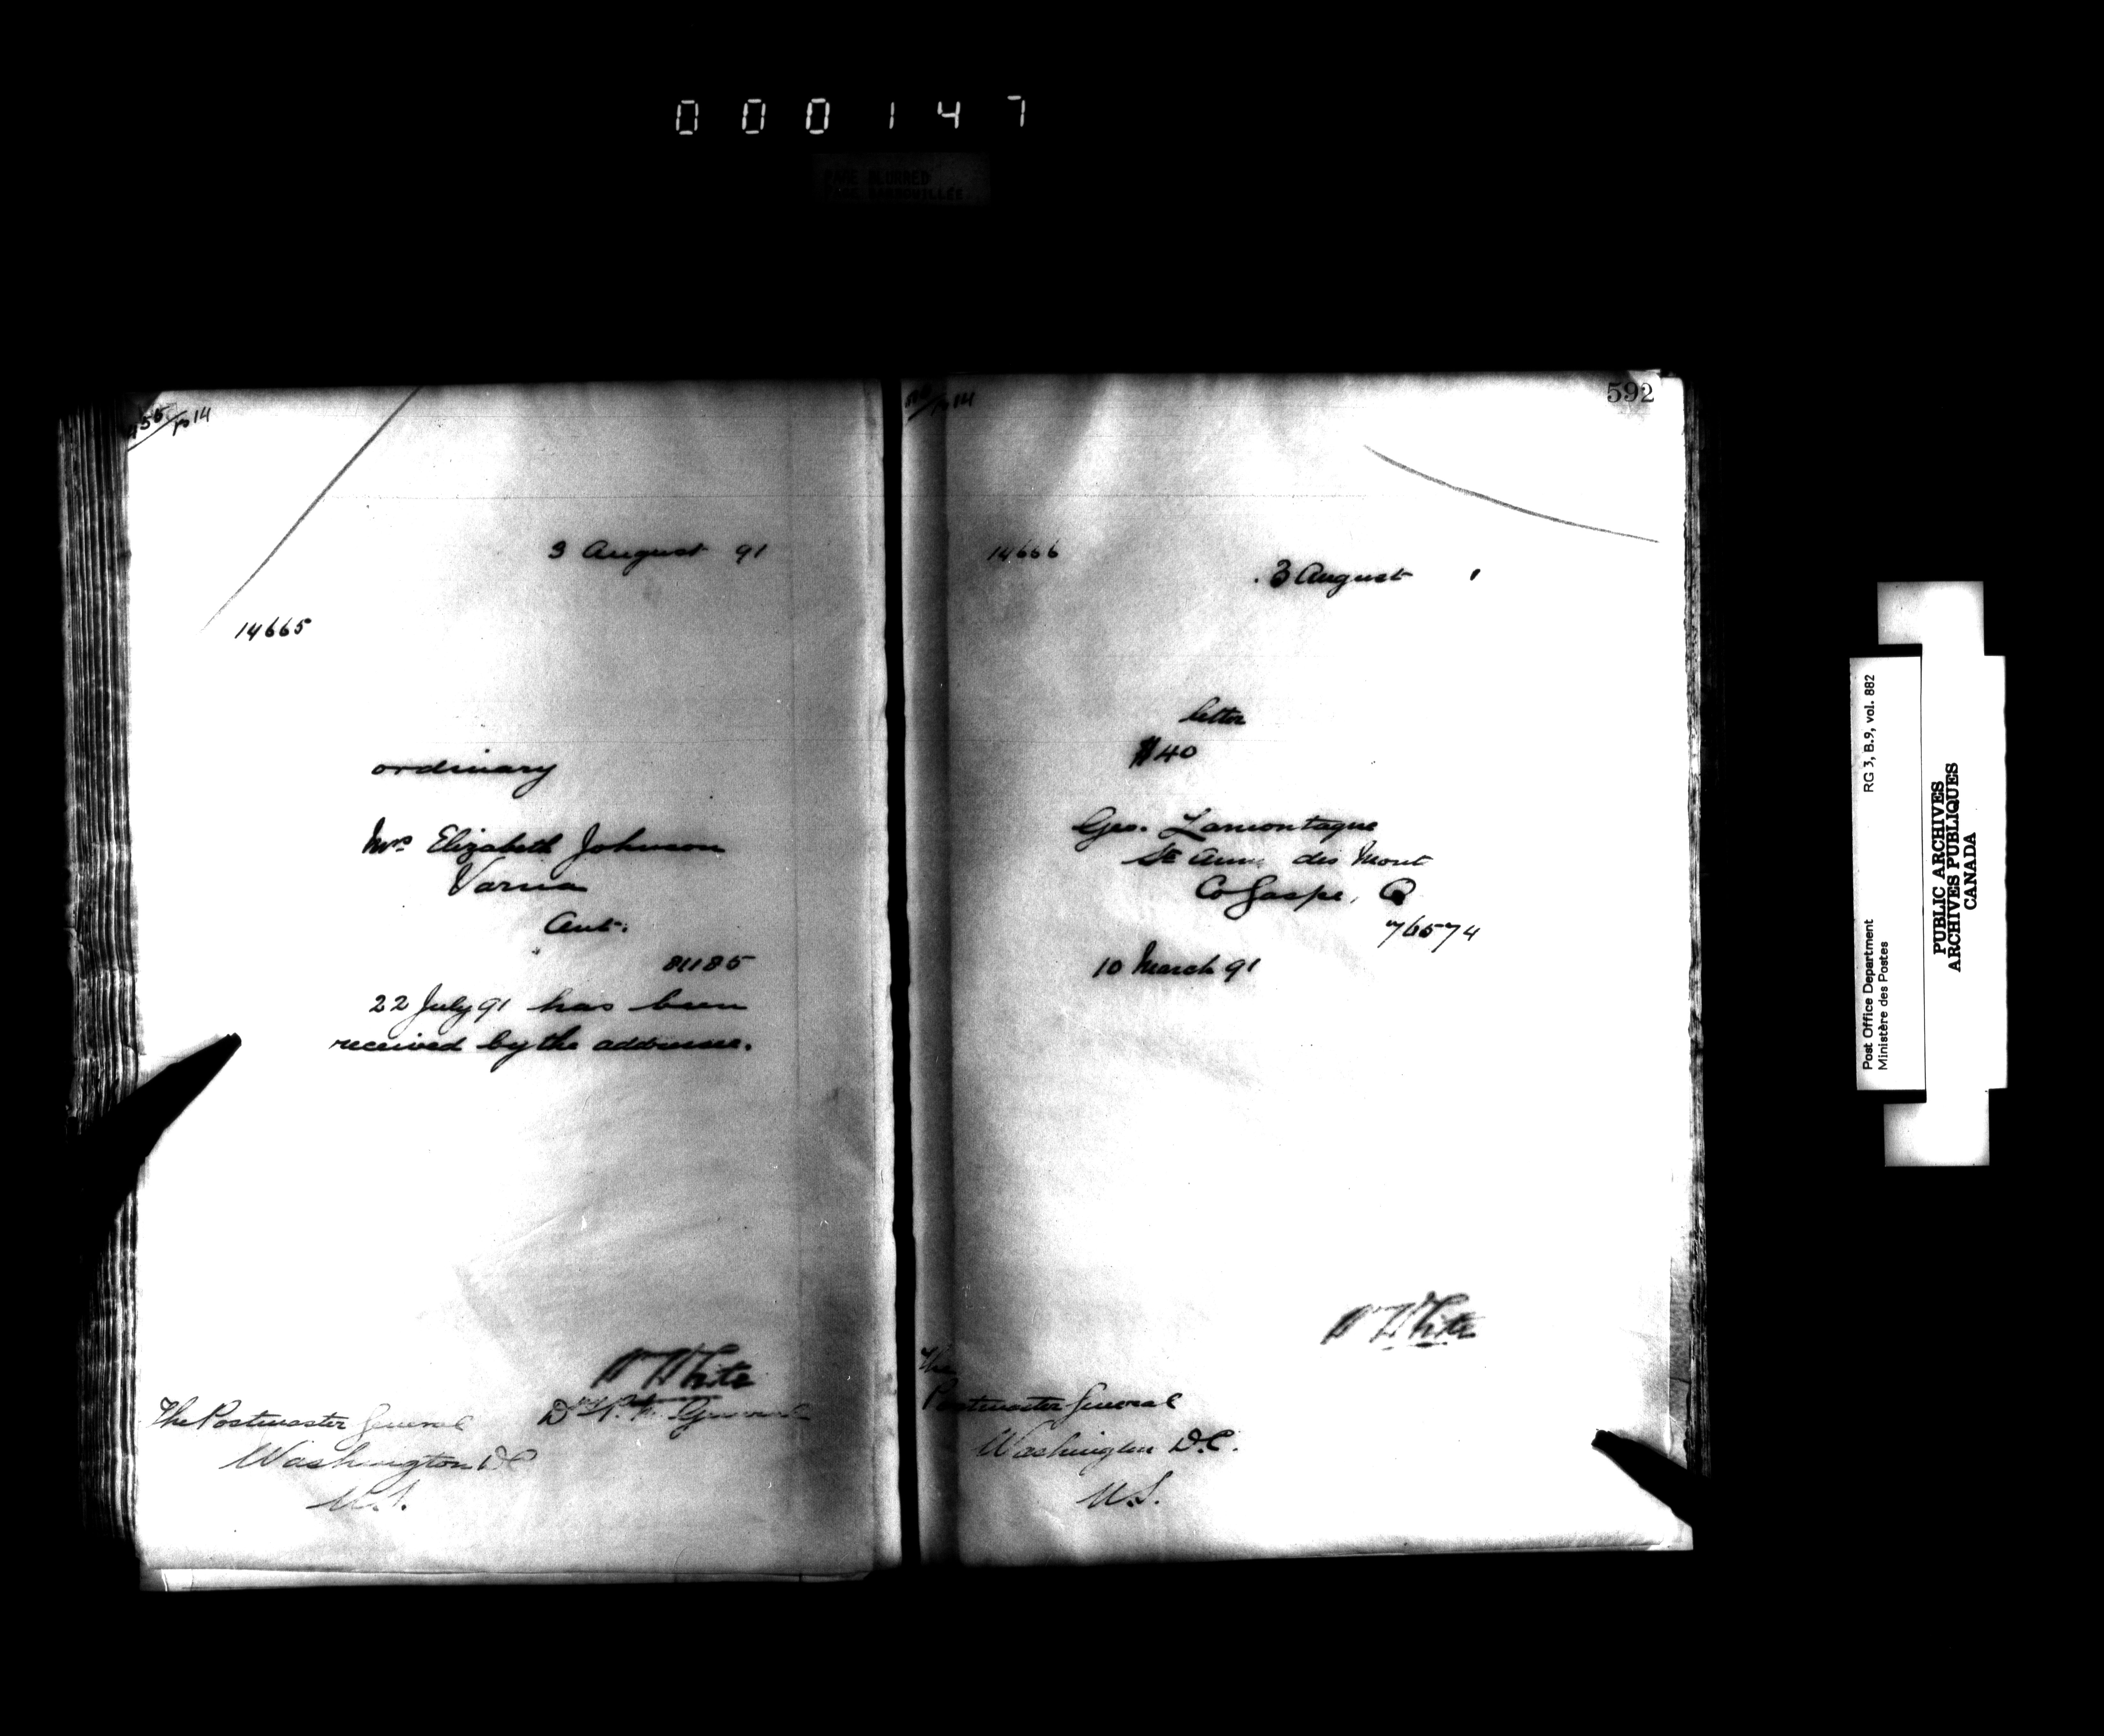 000147
14
3 August 91
14665
ordinary
Mrs Elizabeth Johnson
Varna
Ont.
81185
22 July 91 has been
received by the addressee.
W White
The Postmaster General
Washington DC
U.S.
592
14
14666
3 August
letter
$40
Geo. Lamontagne
Ste Anne des Mont
Co Gaspe, Q
76574
10 March 91
W White
The
Postmaster General
Washington D.C.
U.S.
Post Office Department
Ministère des Postes
RG 3, B.9, vol. 882
PUBLIC ARCHIVES
ARCHIVES PUBLIQUES
CANADA